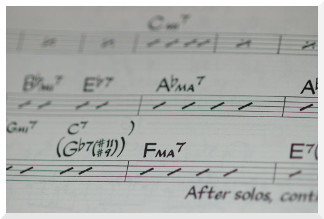 C MI7
B♭MI7 E♭7 A♭MA7 A♭
GMI7 C7 )
(G♭7(♯11 ♯9)) FMA7 E7(
After solos, conti